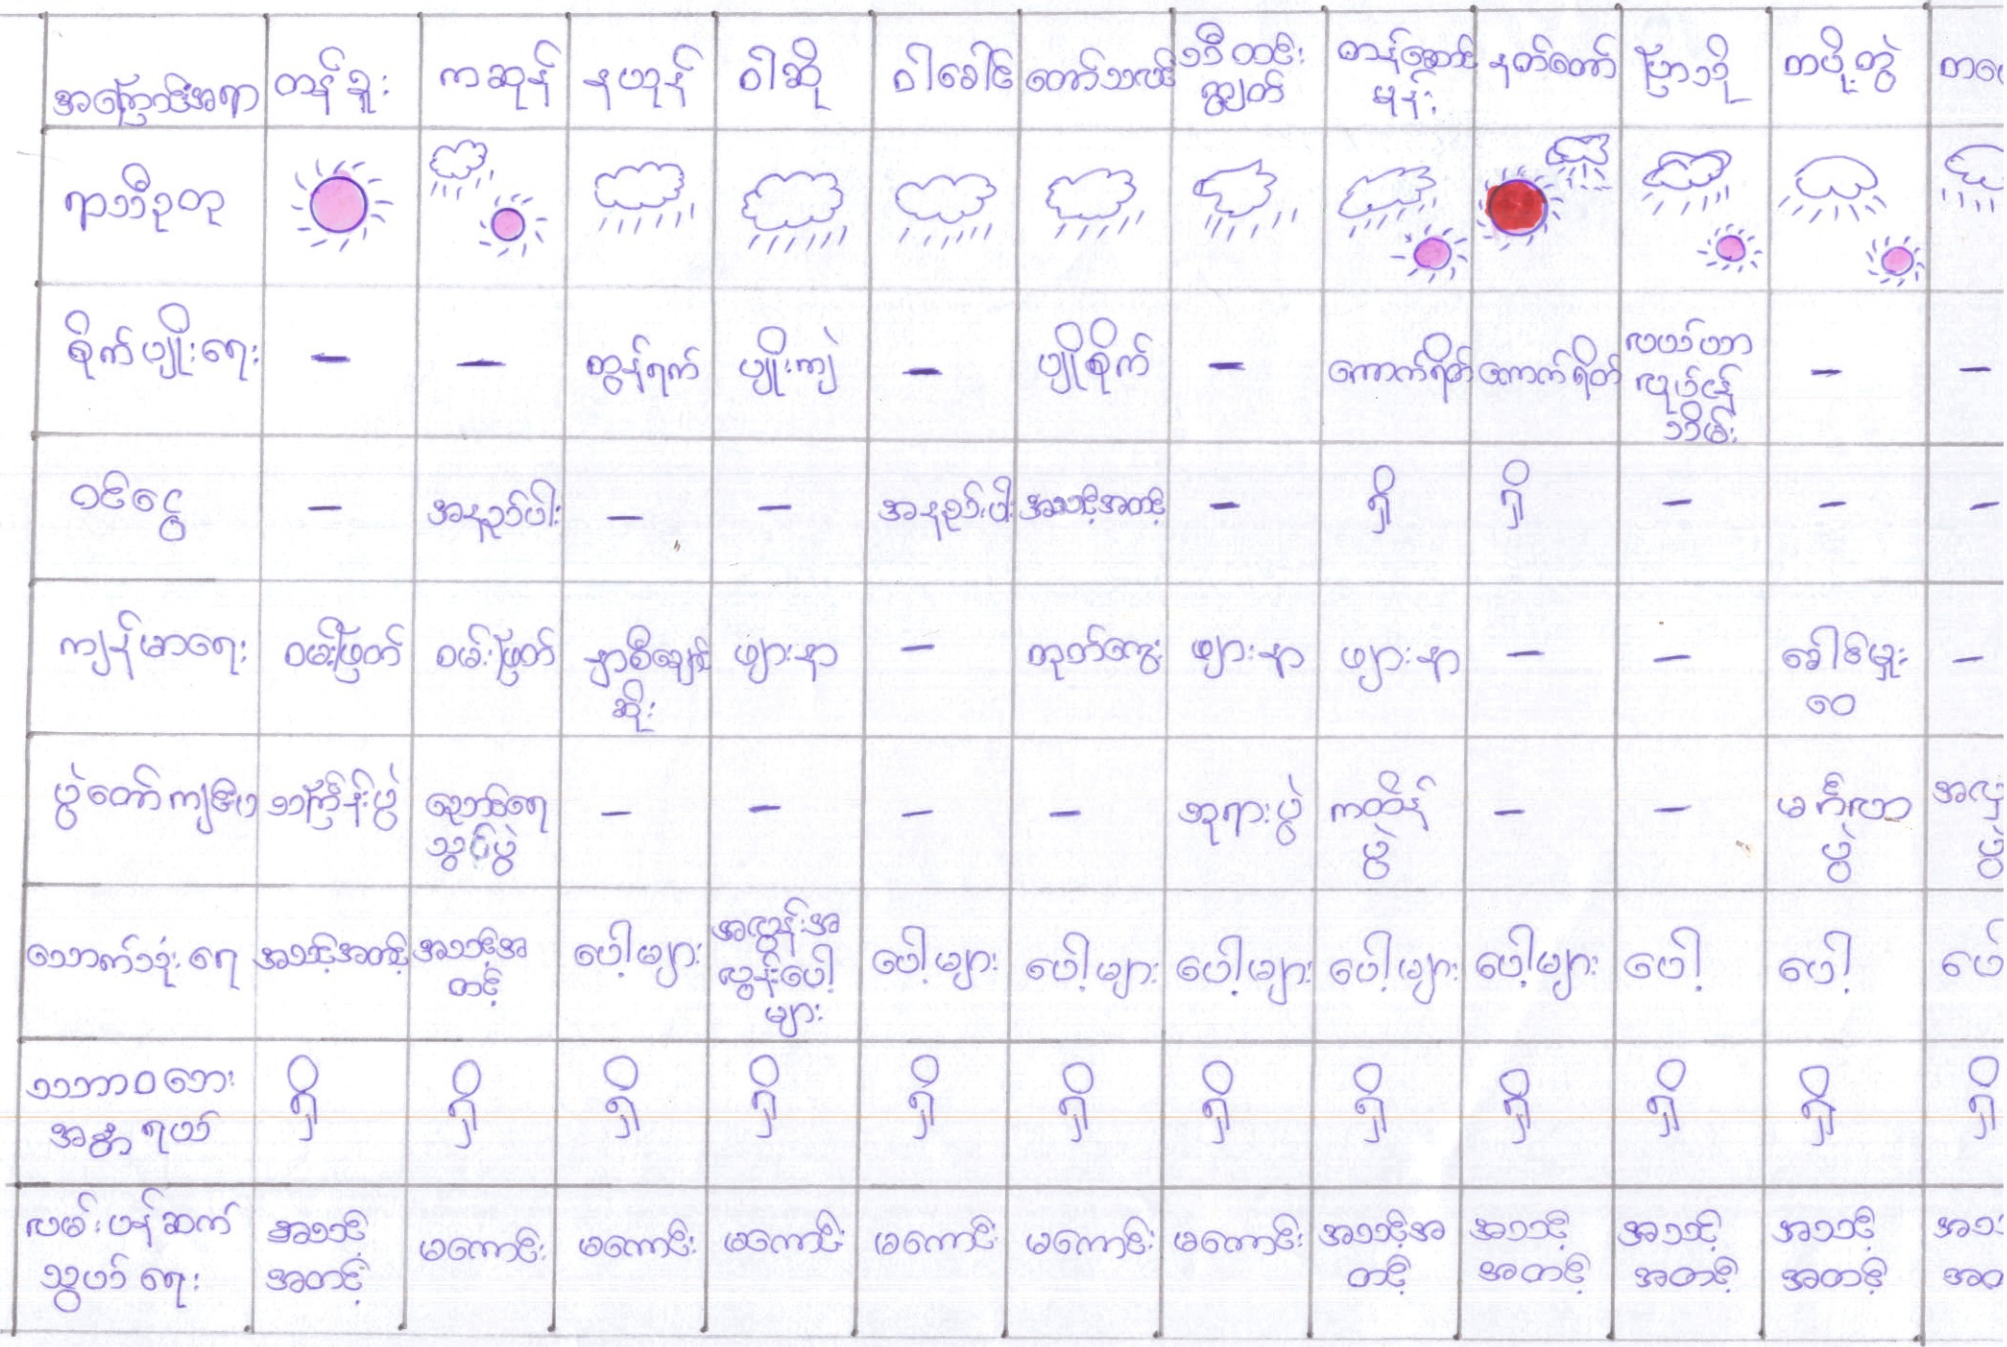 အကြောင်းအရာ တန်ခူး ကဆုန် နယုန် ဝါဆို ဝါခေါင် တော်သလင်း သီတင်း ကျွတ် တန်ဆောင် မုန်း နတ်တော် ပြာသို တပို့တွဲ
ရာသီဥတု
စိုက်ပျိုးရေး - - ထွန်ရက် ပျိုးကျဲ - ပျိုစိုက် - ကောက်ရိတ် ကောက်ရိတ် လယ်ယာ လုပ်ငန်း သိမ်း - -
ဝင်ငွေ - အနည်းပါး - - အနည်းပါး အသင့်အတင့် - ရှိ ရှိ - - -
ကျန်မာရေး ဝမ်းဖြတ် ဝမ်းဖြတ် နှာစီချောင်း ဆိုး ဖျားနာ - တုတ်ကွေး ဖျားနာ ဖျားနာ - - ခေါင်မူး -
ပွဲတော်ကျင်းပ သင်္ကြန်ပွဲ ညောင်ရေ သွင်းပွဲ - - - - ဘုရားပွဲ ကထိန် ပွဲ - - မင်္ဂလာ ပွဲ
သောက်သုံးရေ အသင့်အတင့် အသင့်အ တင့် ပေါ့များ အလွန်အ လွန်ပေါ့ များ ပေါ့များ ပေါ့များ ပေါ့များ ပေါ့များ ပေါ့များ ပေါ့ ပေါ့
သဘာဝဘေး အန္တရာယ် ရှိ ရှိ ရှိ ရှိ ရှိ ရှိ ရှိ ရှိ ရှိ ရှိ ရှိ ရှိ
လမ်းပန်းဆက် သွယ်ရေး အသင့် အတင့် မကောင်း မကောင်း မကောင်း မကောင်း မကောင်း မကောင်း အသင့်အ တင့် အသင့် အတင့် အသင့် အတင့် အသင့် အတင့်